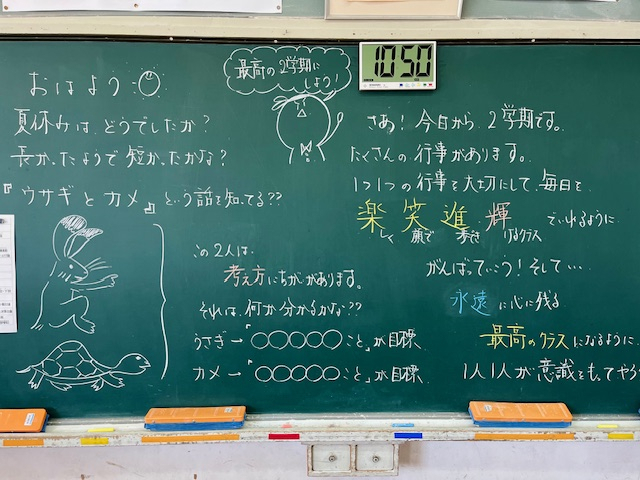 おはよう
夏休みは、どうでしたか?
長かったようで短かったかな?
『ウサギとカメ』という話を知ってる??
この2人は、
考え方にちがいがあります。
それは、何か分かるかな??
うさぎ→「○○○○○こと」が目標、
カメ→「○○○○○こと」が目標、
最高の2学期に
しよう!
10:50
さあ!今日から、2学期です。
たくさんの行事があります。
1つ1つの行事を大切にして、毎日を
楽しく 笑顔で 進歩き 輝けるクラスでいれるように
がんばっていこう!そして…
永遠に心に残る
最高のクラスになるように
1人1人が意識をもってやろう